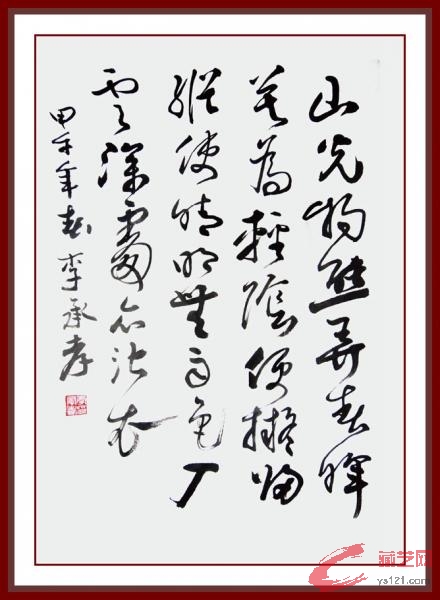 山光物態弄春暉
莫為輕陰便擬歸
縱使晴明無雨色入
雲深處亦沾衣
甲午年春李承孝
藏艺网
ys121.com